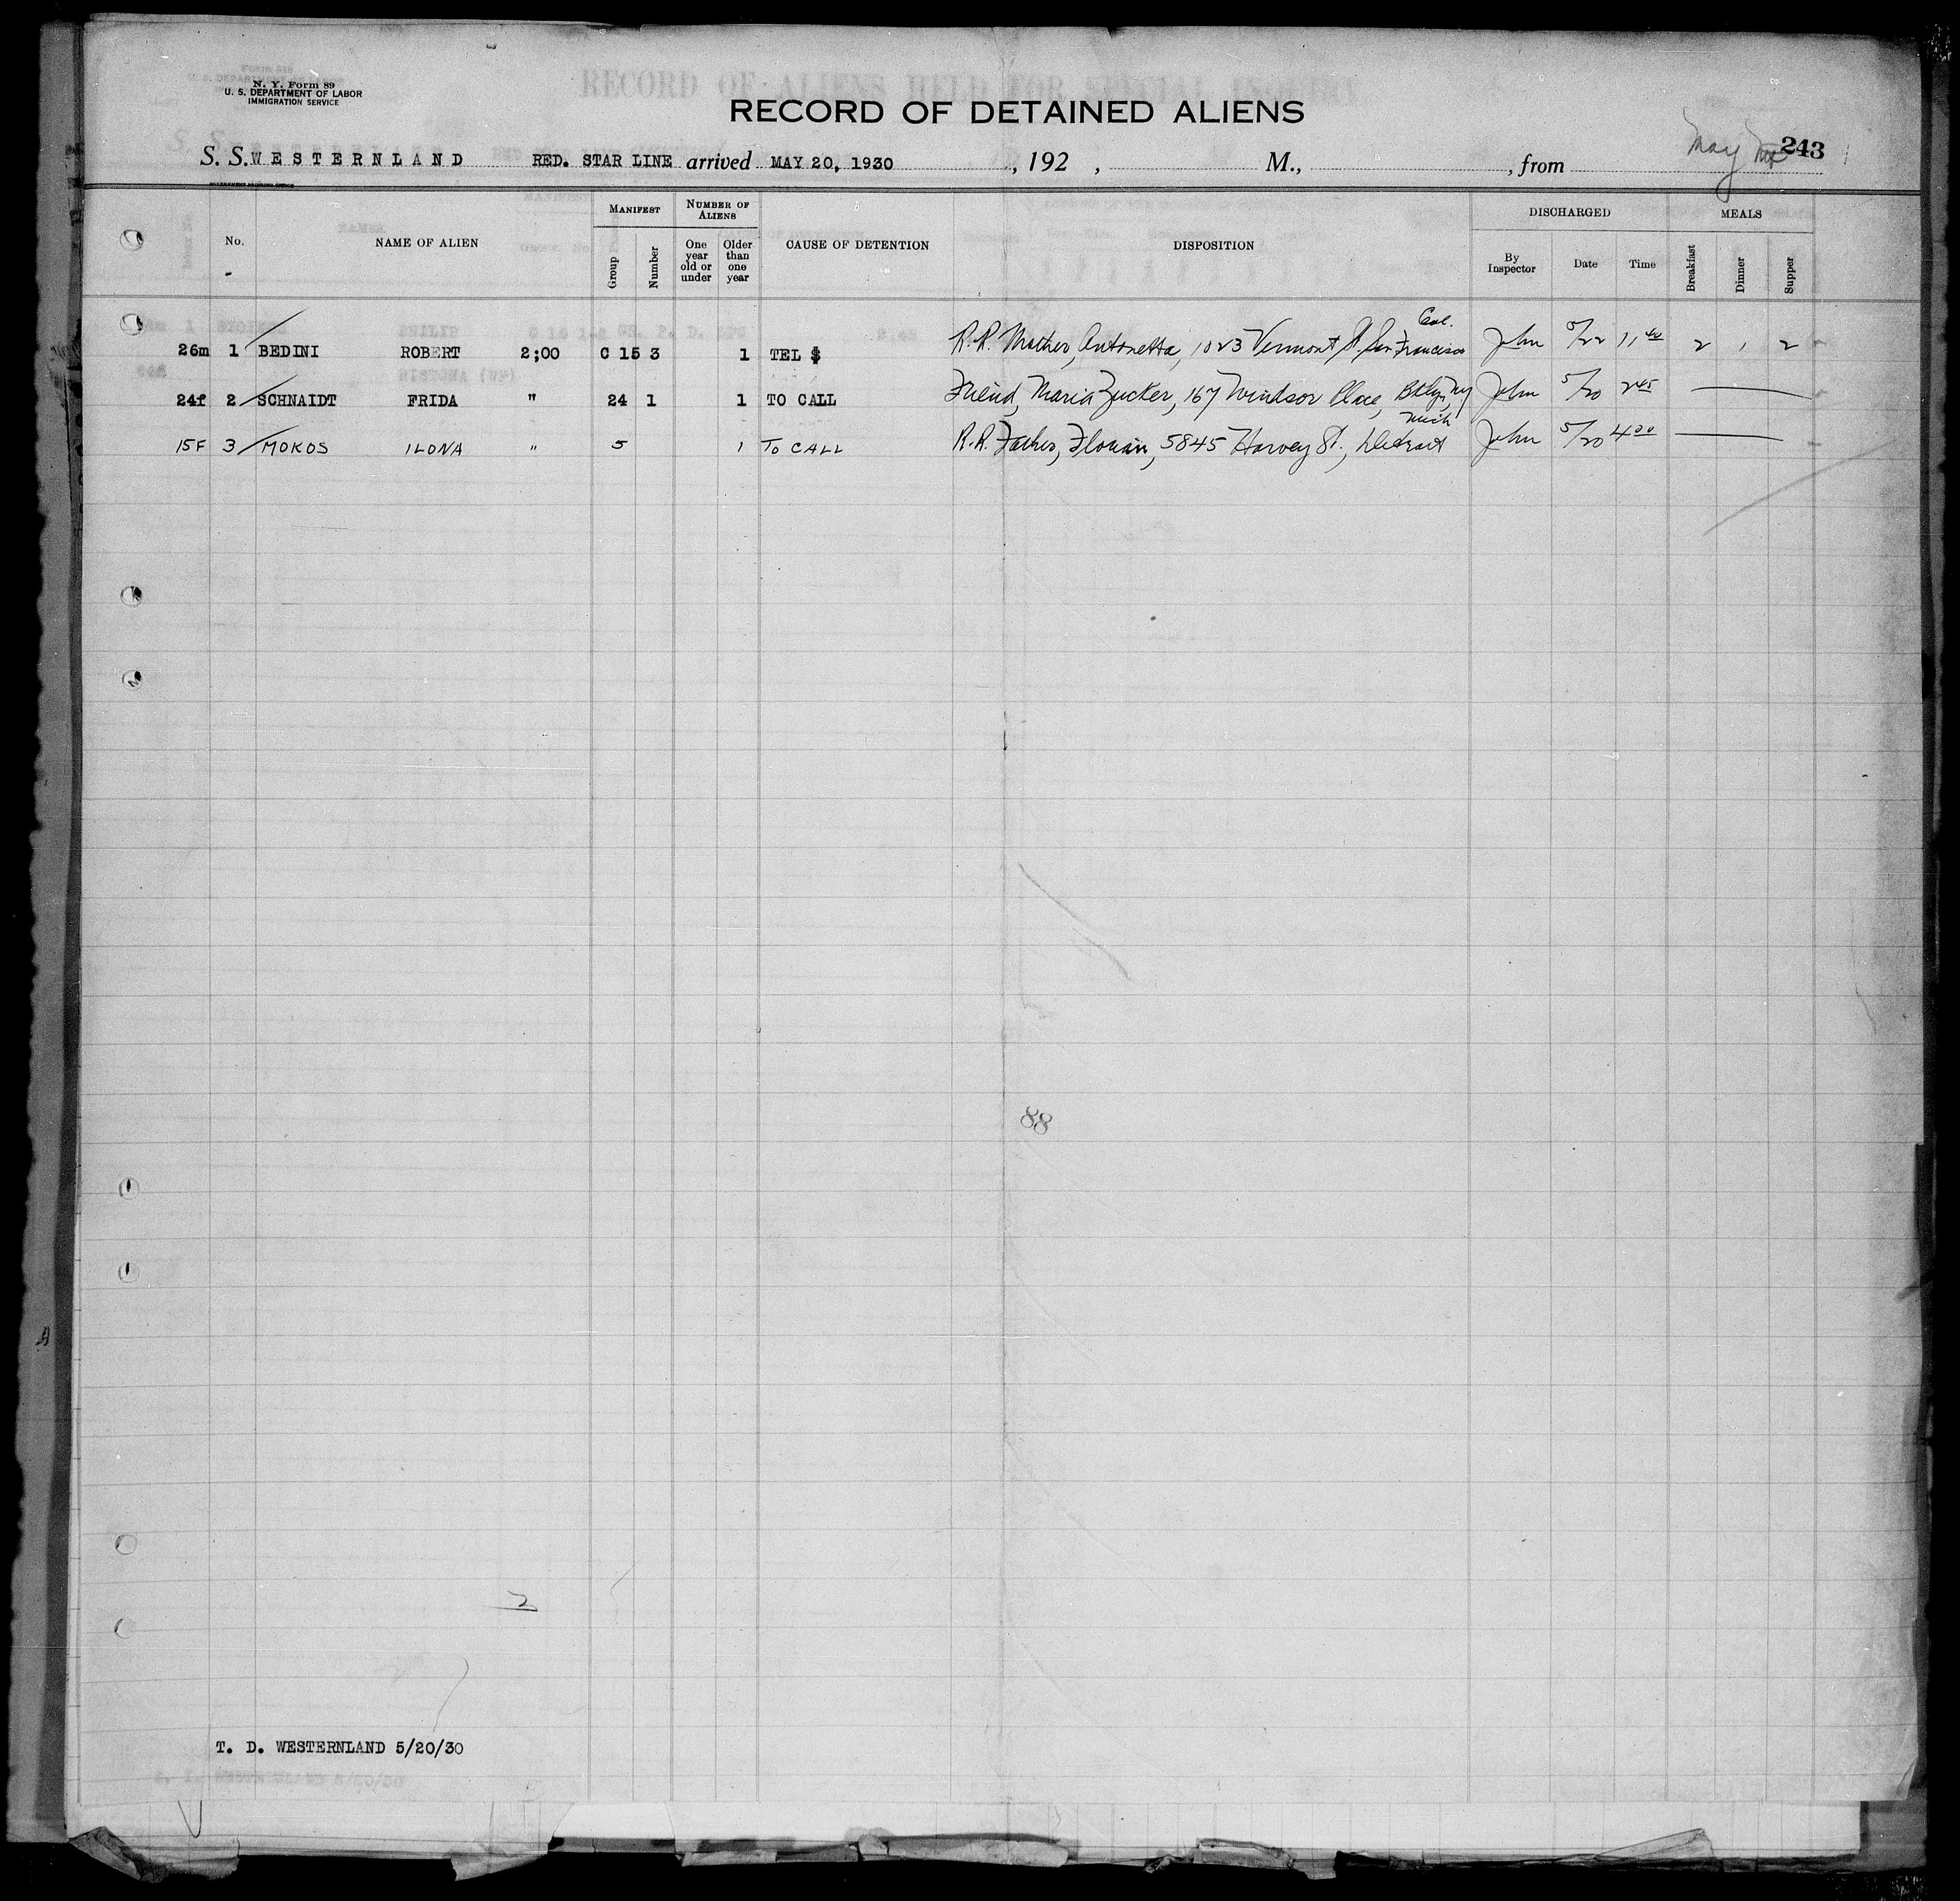 N. Y. Form 89
U. S. DEPARTMENT OF LABOR
IMMIGRATION SERVICE
RECORD OF ALIENS HELD FOR SPECIAL INQUIRY
RECORD OF DETAINED ALIENS
May 243
S. S. WESTERNLAND RED. STAR LINE arrived MAY 20, 1930, 192 , M., , from
No. NAME OF ALIEN MANIFEST Group Number NUMBER OF ALIENS One year old or under Older than one year CAUSE OF DETENTION DISPOSITION DISCHARGED By Inspector Date Time MEALS Breakfast Dinner Supper
Cal.
26m 1 BEDINI ROBERT 2;00 C 15 3 1 TEL $ R.R. Mother, Antonetta, 1023 Vermont St. San Francisco John 5/22 11 40 2 1 2
24f 2 SCHNAIDT FRIDA " 24 1 1 TO CALL Friend, Maria Zucker, 167 Windsor Place, Bklyn, NY John 5/20 2 45
Mich
15F 3 MOKOS ILONA " 5 1 TO CALL R.R. Father, Florian, 5845 Harvey St., Detroit John 5/20 4 20
88
2
T. D. WESTERNLAND 5/20/30